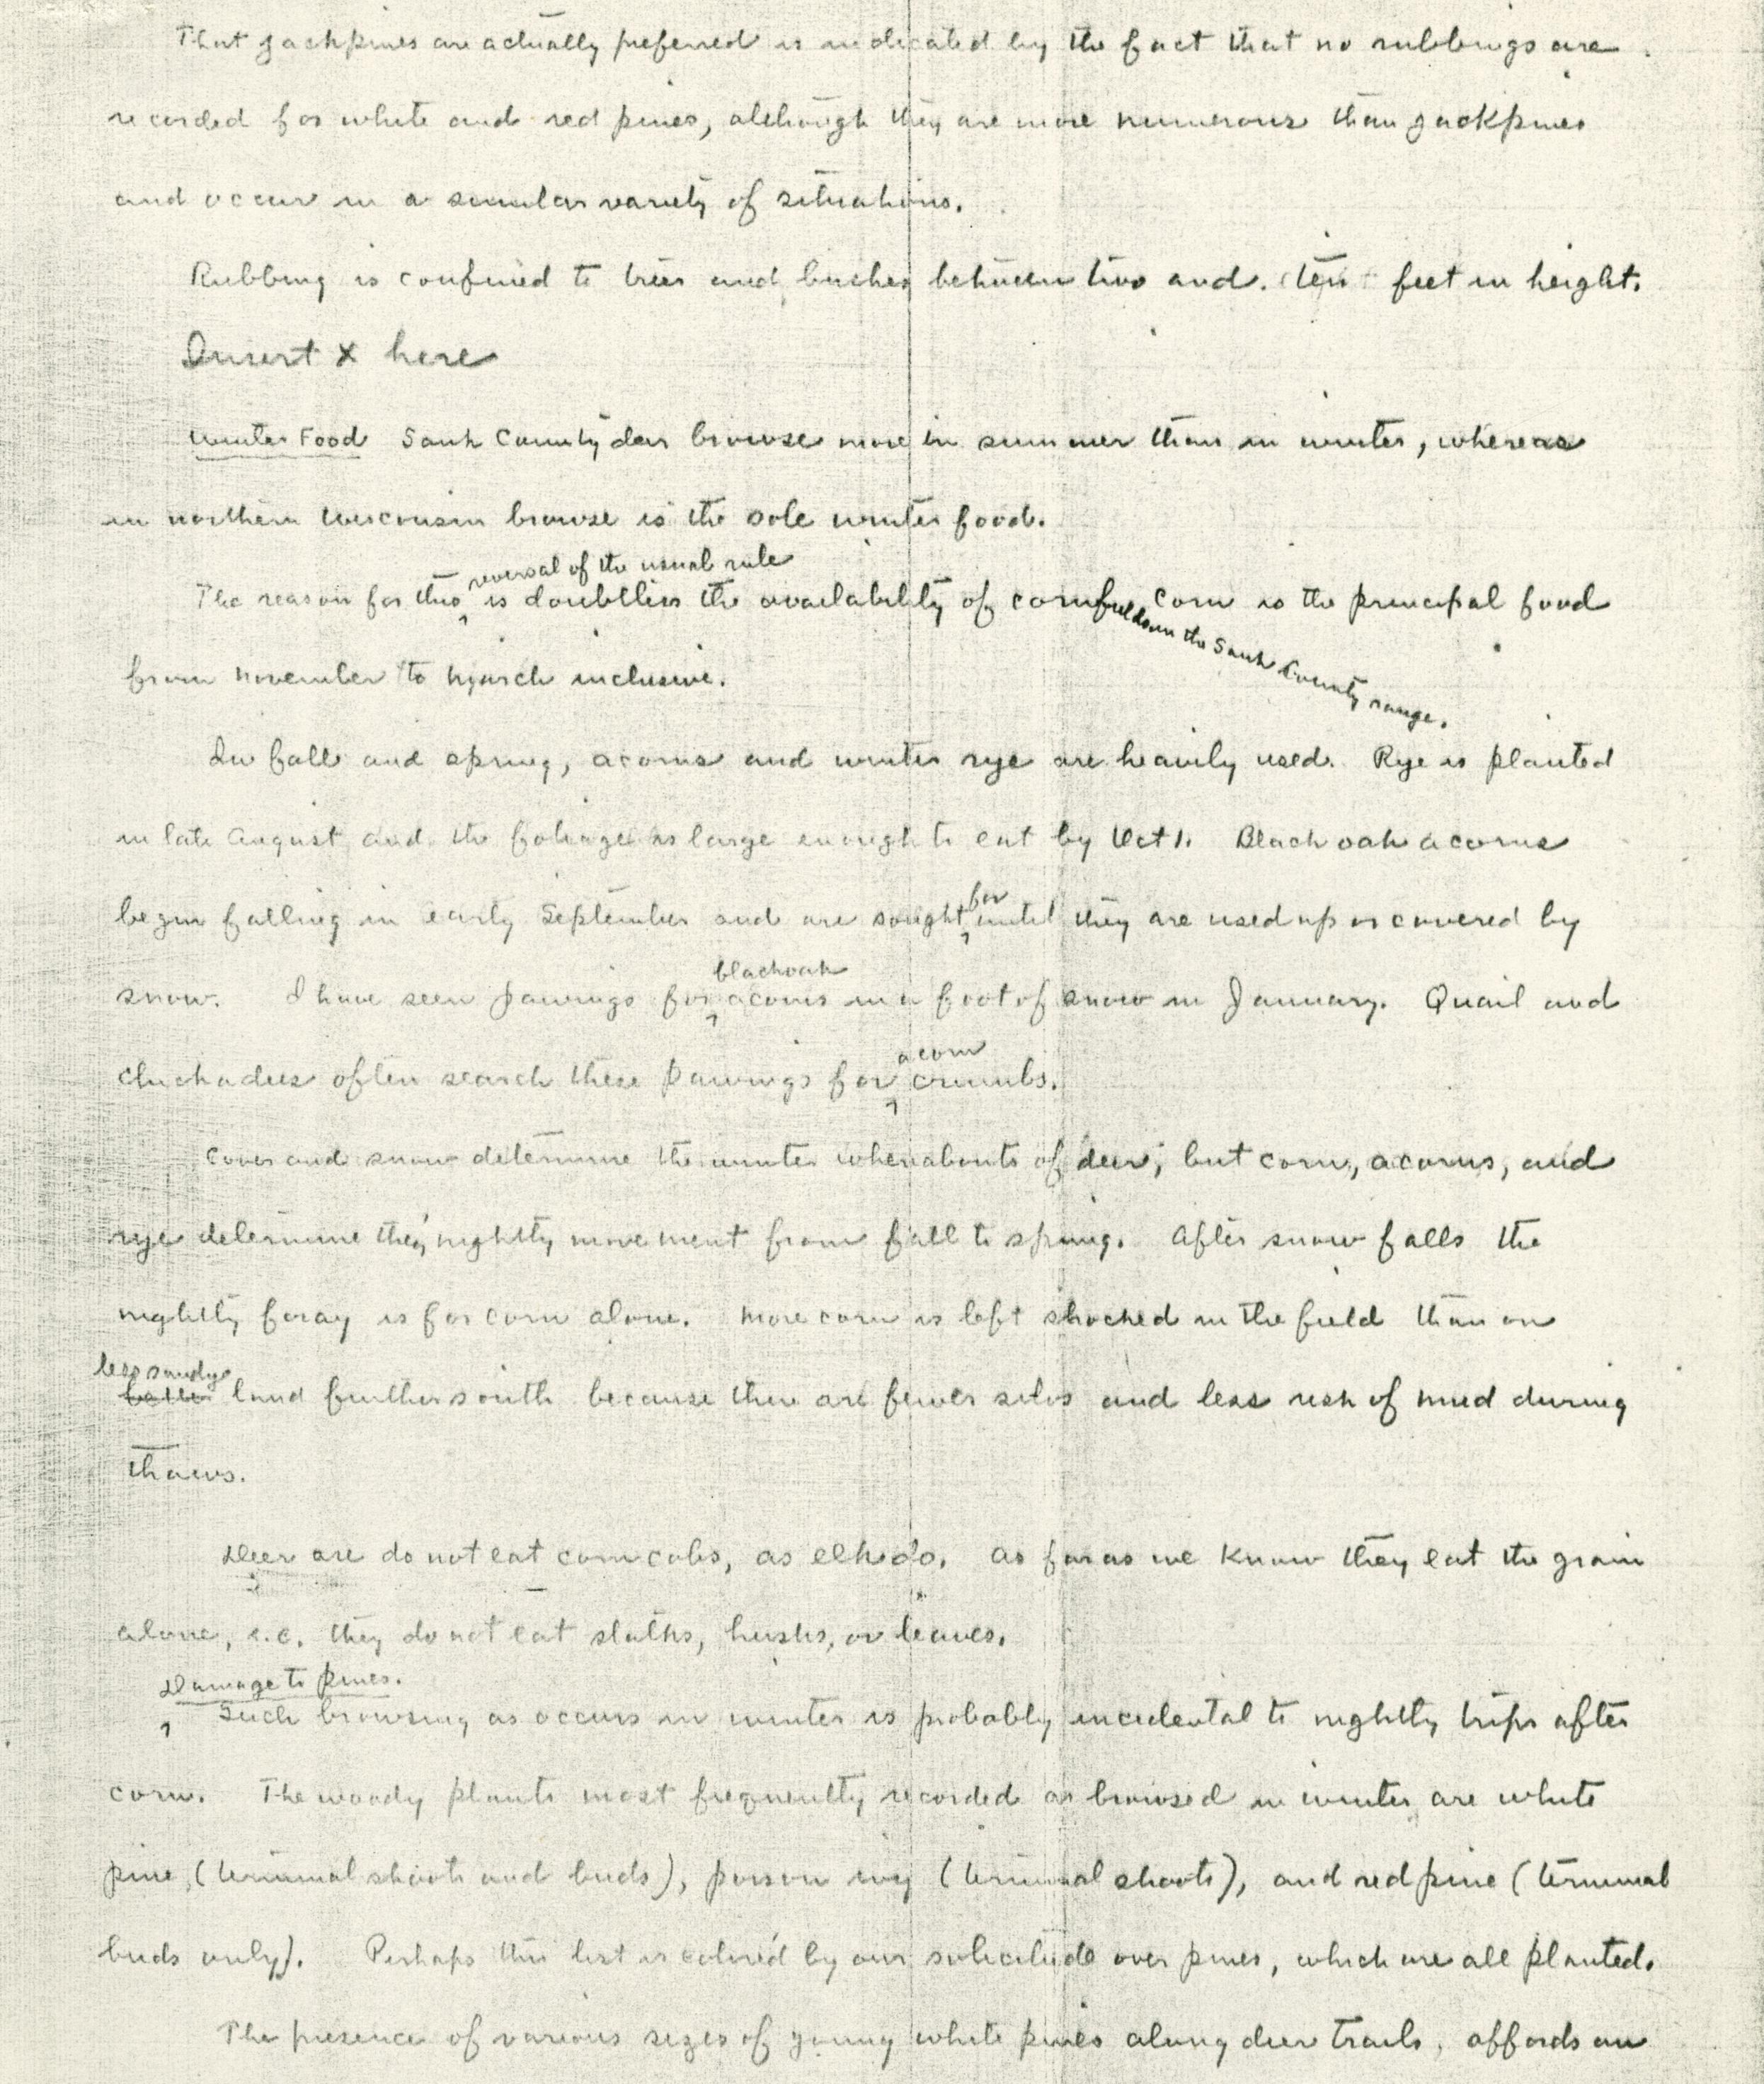 That Jackpines are actually preferred is indicated by the fact that no rubbings are
recorded for white and red pines, although they are more numerous than Jackpines
and occur in a similar variety of situations.
Rubbing is confined to trees and bushes between two and ten feet in height.
Insert x here
Winter Food Sauk County deer browse more in summer than in winter, whereas
in northern Wisconsin browse is the sole winter food.
reversal of the usual rule
The reason for this is doubtless the availability of cornfields Corn is the principal food
in the Sauk County range.
from November to March inclusive.
In fall and spring, acorns and winter rye are heavily used. Rye is planted
in late August and the foliage is large enough to eat by Oct 1. Black oak acorns
for
begin falling in early September and are sought until they are used up or covered by
black oak
snow. I have seen pawings for acorns in a foot of snow in January. Quail and
acorn
chickadees often search these pawings for crumbs.
Cover and snow determine the winter whereabouts of deer, but corn, acorns, and
rye determine they nightly movement from fall to spring. After snow falls the
nightly foray is for corn alone. More corn is left shocked in the field than on
less sandy
better land further south because there are fewer silos and less risk of mud during
thaws.
Deer are do not eat corn cobs, as elk do. As far as we know they eat the grain
alone, i.e. they do not eat stalks, husks, or leaves.
Damage to pines.
Such browsing as occurs in winter is probably incidental to nightly trips after
corn. The woody plants most frequently recorded as browsed in winter are white
pine (terminal shoots and buds), poison ivy (terminal shoots), and red pine (terminal
buds only). Perhaps this list is colored by our solicitude over pines, which are all planted.
The presence of various sizes of young white pines along deer trails, affords an